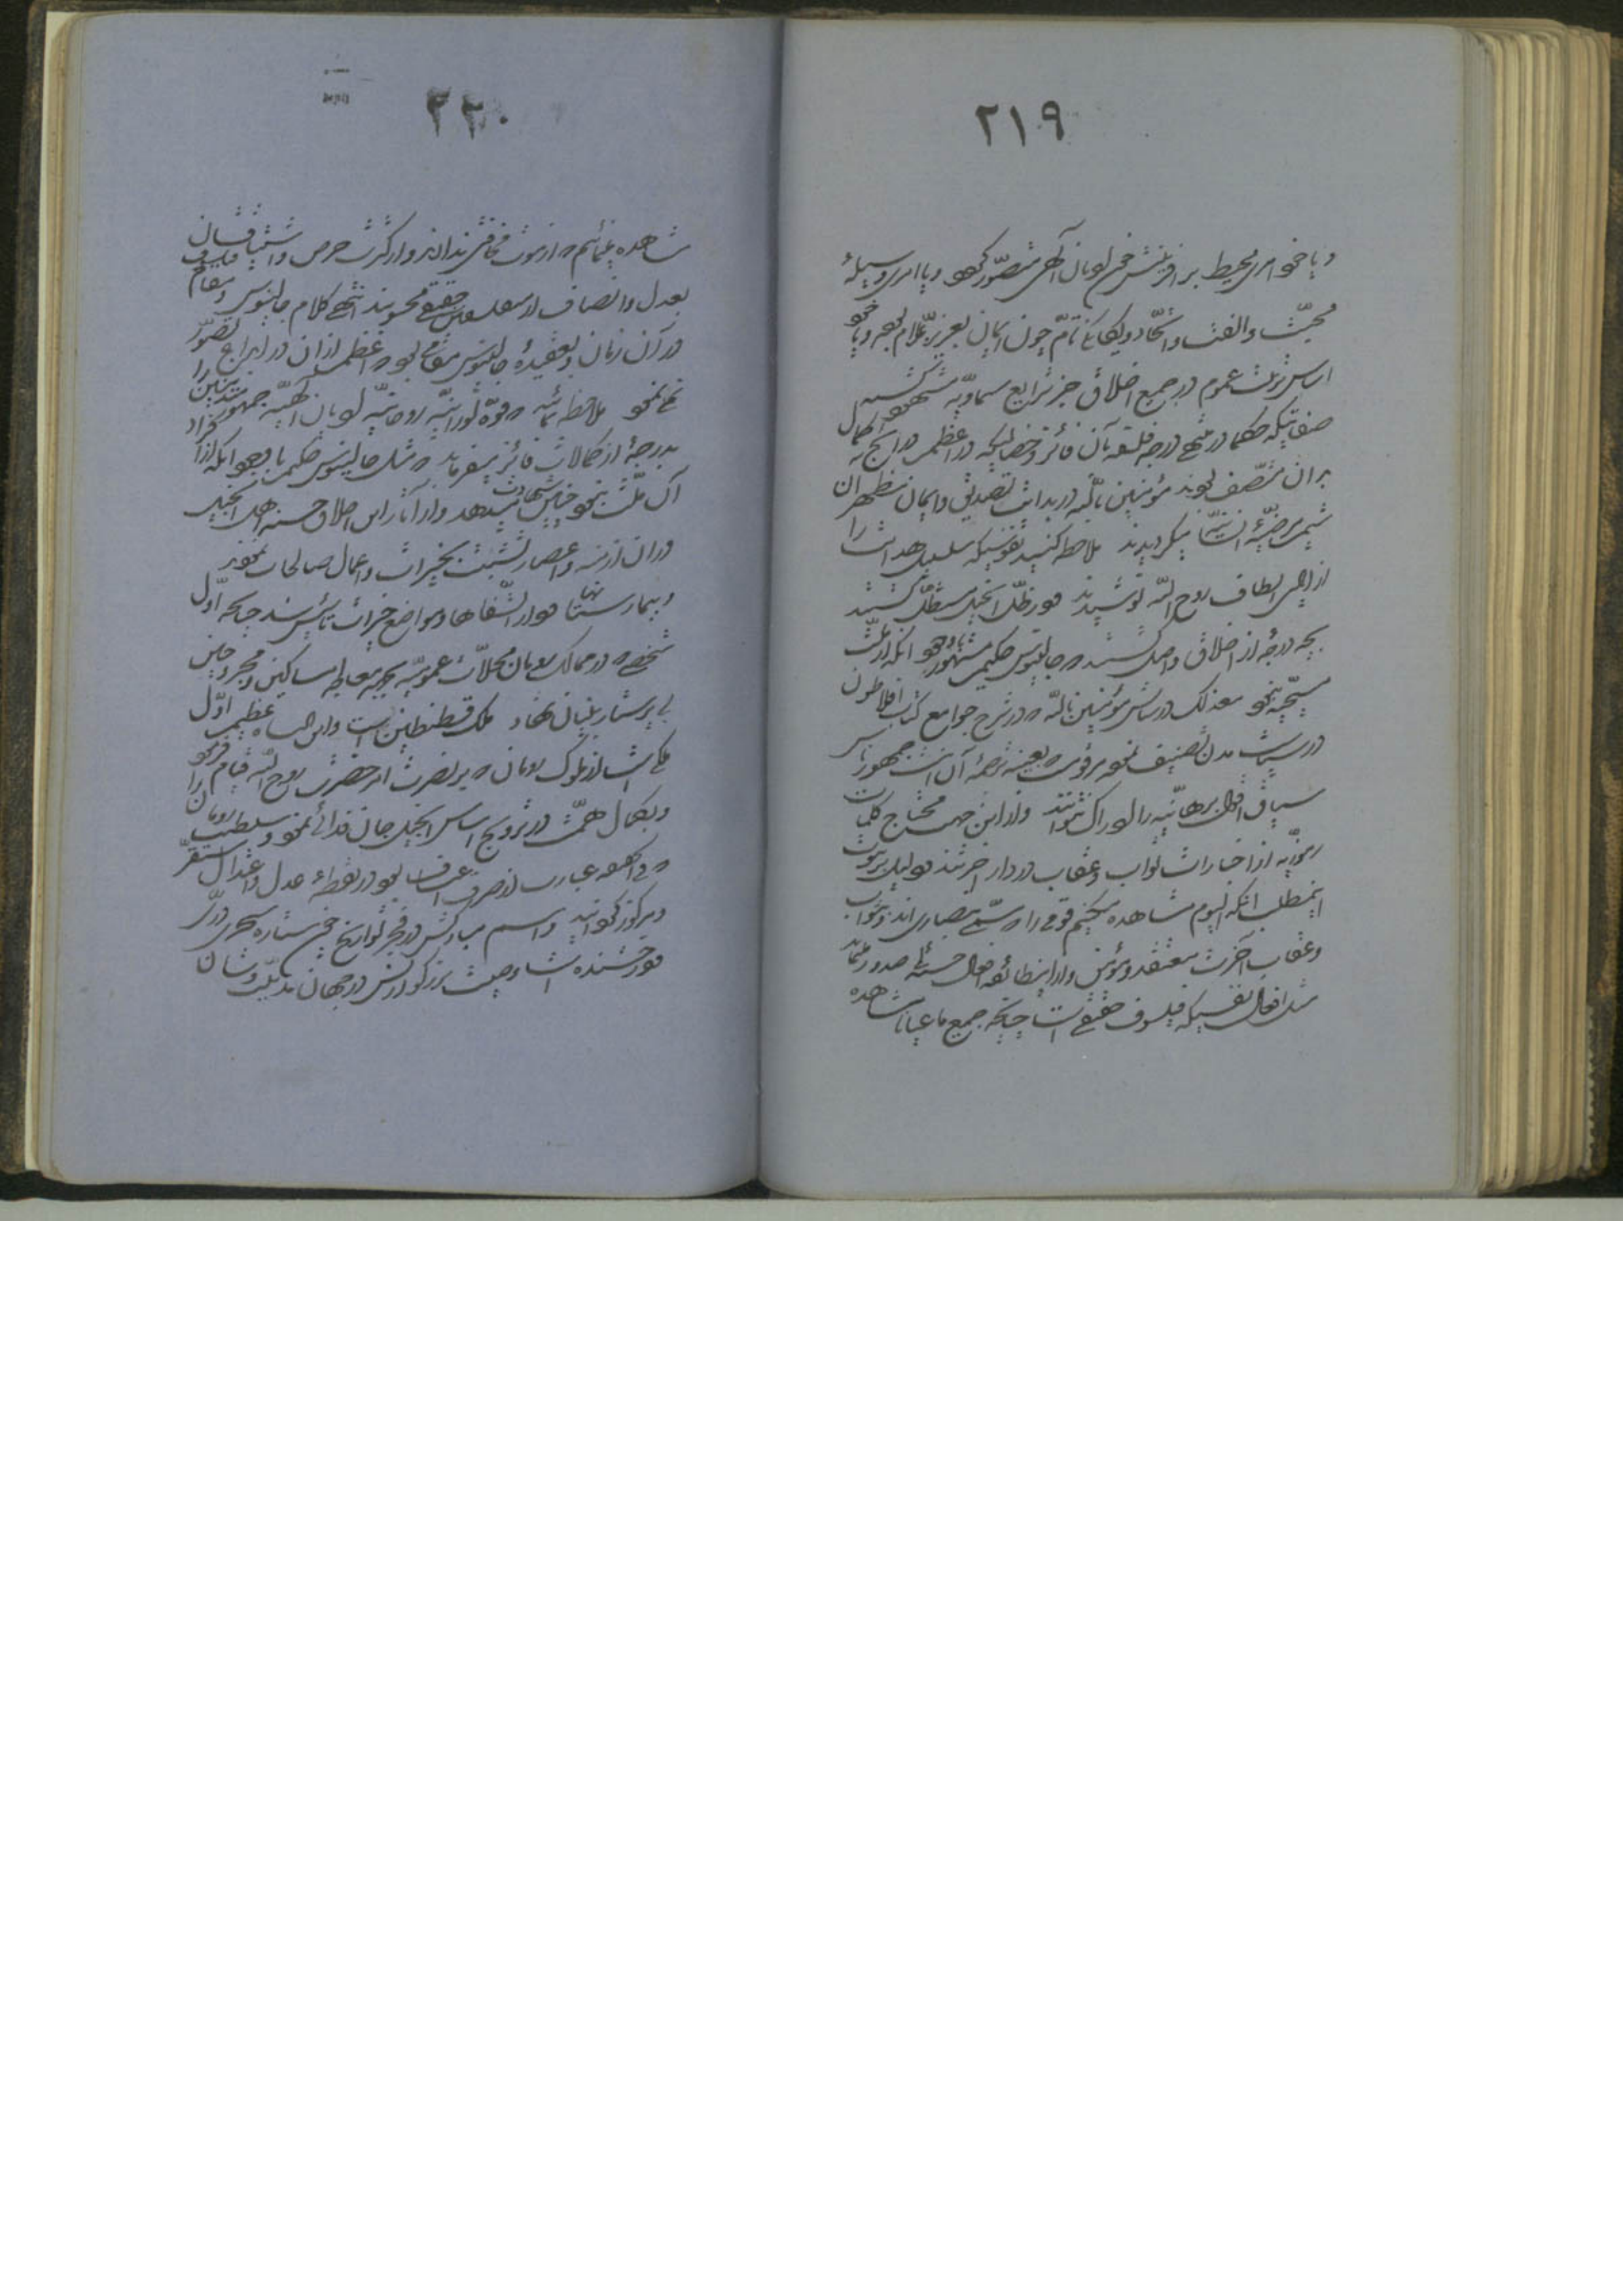 ٢١٩
و یا خود امری محیط بر آفرینش چون ادیان آلهی متصوّر گردد و یا امری وسیلهٔ
محبّت و الفت و اتّحاد و یگانگی تامّ چون ایمان بعزیز علّام بوده و یا خود
اساس تربیت عموم در جمیع اخلاق جز شرایع سماویّه مشهود گشته
صفاتیکه حکما در منتهی درجه فلسفه بآن فائز و خصائلیکه در اعظم مدارج کمال
بر آن متّصف بودند مؤمنین باللّه در بدایت تصدیق و ایمان مظهر آن
شیم مرضیّهٔ انسانیّه میگردیدند ملاحظه کنید نفوسیکه سلسبیل هدایت را
از ایادی الطاف روح اللّه نوشیدند و در ظلّ انجیل مستظلّ گشتند
بچه درجهٔ از اخلاق واصل گشتند که جالینوس حکیم مشهور با وجود آنکه از ملّت
مسیحیّه نبود معذلک در ستایش مؤمنین باللّه که در شرح جوامع کتاب افلاطون
در سیاست مدن تصنیف نموده مرقوم که بعینه ترجمهٔ آن اینست جمهور ناس
سیاق اقوال برهانیّه را ادراک نتوانند و از این جهت محتاج کلمات
رموزیّه از اخبارات ثواب و عقاب در دار آخرتند و دلیل بر ثبوت
این مطلب آنکه الیوم مشاهده میکنیم قومی را که مسمّی بنصاری‌اند و بثواب
و عقاب آخرت معتقد و مؤمن و از این طائفه افعال حسنه‌ئی صدور مینماید
مثل افعال نفسیکه فیلسوف حقیقی است چنانچه جمیع ما عیاناً مشاهده
٢٢٠
مشاهده مینمائیم که از موت مخافتی ندارند و از کثرت حرص و اشتیاقشان
بعدل و انصاف از متفلسفین حقیقی محسوبند انتهی کلام جالینوس و مقام فیلسوف
در آن زمان و بعقیدهٔ جالینوس مقامی بود که اعظم از آن در ابداع تصوّر
نمینمود ملاحظه نمائید که قوّهٔ نورانیّه روحانیّه ادیان الهیّه جمهور متدیّنین را
بدرجهٔ از کمالات فائز میفرماید که مثل جالینوس حکیم با وجود آنکه از افراد
آن ملّت نبود چنین شهادت میدهد و از آثار این اخلاق حسنه اهل انجیل
در آن ازمنه و اعصار تشبّث بخیرات و اعمال صالحات نمودند
و بیمارستانها و دار الشّفاها و مواضع خیرات تأسیس شد چنانچه اوّل
شخصی که در ممالک رومان محلّات عمومیّه بجهة معالجه مساکین و مجروحین
بی پرستار بنیان نهاد ملک قسطنطین است و این پادشاه عظیم اوّل
ملکی است از ملوک رومان که بر نصرت امر حضرت روح اللّه قیام فرمود
و بکمال همّت در ترویج اساس انجیل جان فدائی نمود و سلطنت رومان را
که فی الحقیقه عبارت از صرف اعتساف بود در نقطهٔ عدل و اعتدال مستقرّ
و مرکوز گردانید و اسم مبارکش در فجر تواریخ چون ستارهٔ سحری درّی
و درخشنده است و صیت بزرگواریش در جهان مدنیّت و شأن